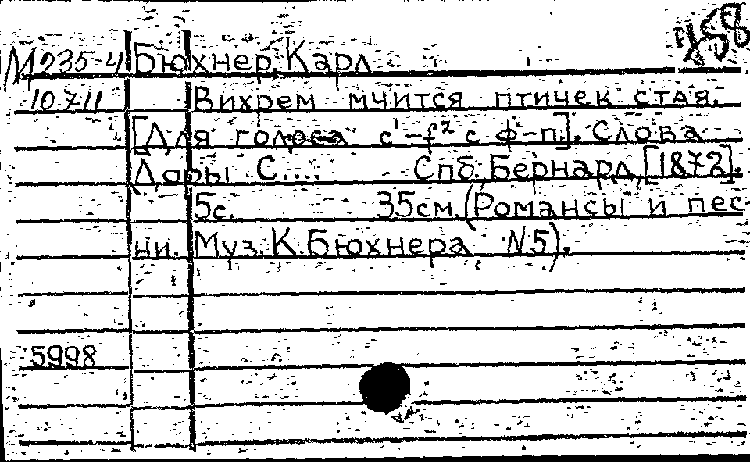 758
М 235-4 Бюхнер, Карл
10711 Вихрем мчится птичек стая.
[Для голоса с¹-f² с ф-п]. Слова
Доры С.... Спб, Бернард, [1872].
5с. 35см. (Романсы и пес-
ни. Муз. К. Бюхнера N5).
5998